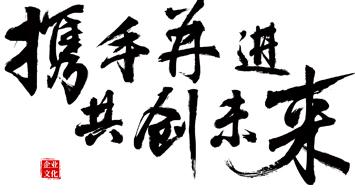 携手再进
共创未来
企业
文化